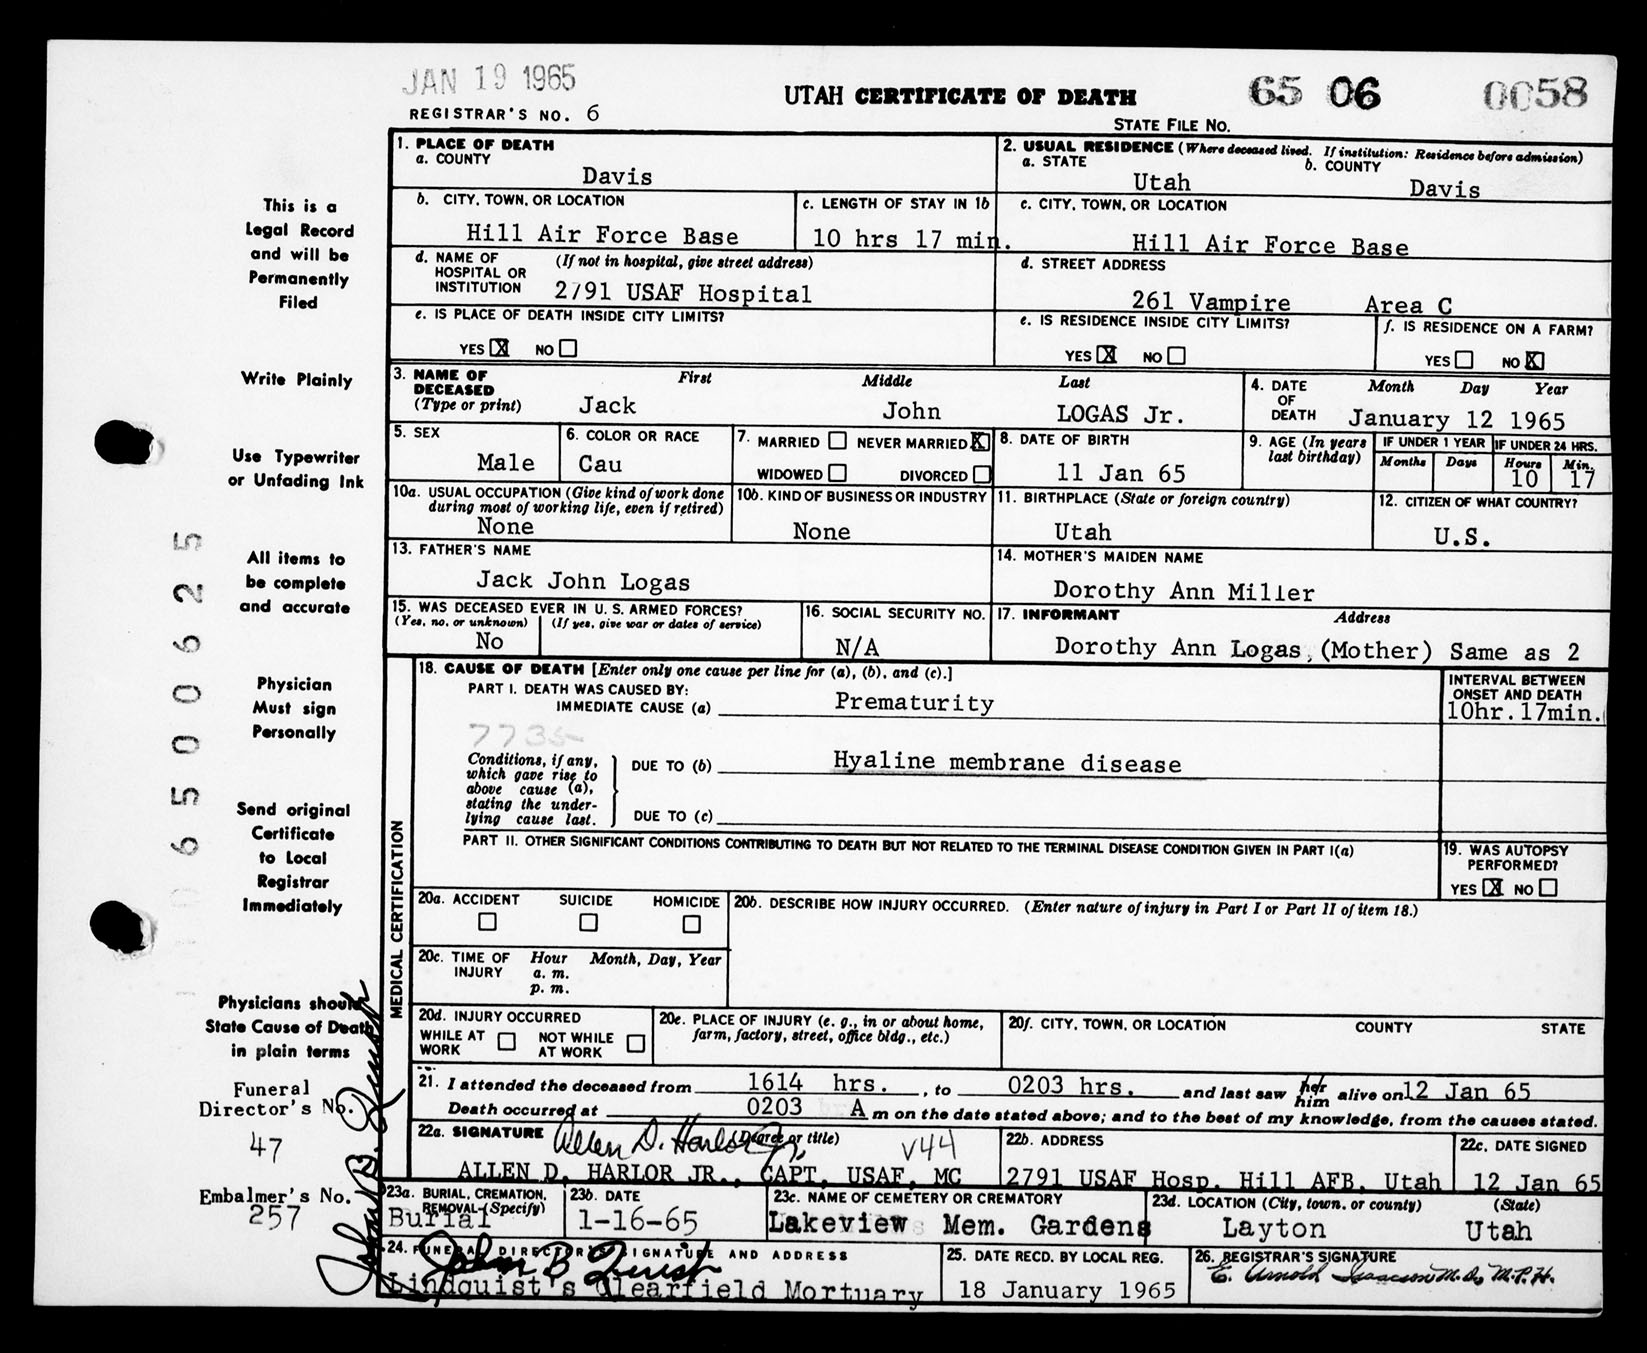 JAN 19 1965
REGISTRAR'S NO. 6
UTAH CERTIFICATE OF DEATH
65 06 0058
STATE FILE NO.
This is a
Legal Record
and will be
Permanently
Filed
Write Plainly
Use Typewriter
or Unfading Ink
All items to
be complete
and accurate
Physician
Must sign
Personally
Send original
Certificate
to Local
Registrar
Immediately
Physicians should
State Cause of Death
in plain terms
Funeral
Director's No.
47
Embalmer's No.
257
6500625
1. PLACE OF DEATH
a. COUNTY
Davis
2. USUAL RESIDENCE (Where deceased lived. If institution: Residence before admission)
a. STATE b. COUNTY
Utah Davis
b. CITY, TOWN, OR LOCATION
Hill Air Force Base
c. LENGTH OF STAY IN 1b
10 hrs 17 min.
c. CITY, TOWN, OR LOCATION
Hill Air Force Base
d. NAME OF HOSPITAL OR INSTITUTION (If not in hospital, give street address)
2791 USAF Hospital
d. STREET ADDRESS
261 Vampire Area C
e. IS PLACE OF DEATH INSIDE CITY LIMITS?
YES X NO
e. IS RESIDENCE INSIDE CITY LIMITS?
YES X NO
f. IS RESIDENCE ON A FARM?
YES NO X
3. NAME OF DECEASED (Type or print)
First Middle Last
Jack John LOGAS Jr.
4. DATE OF DEATH Month Day Year
January 12 1965
5. SEX
Male
6. COLOR OR RACE
Cau
7. MARRIED NEVER MARRIED X
WIDOWED DIVORCED
8. DATE OF BIRTH
11 Jan 65
9. AGE (In years last birthday)
IF UNDER 1 YEAR IF UNDER 24 HRS.
Months Days Hours Min.
10 17
10a. USUAL OCCUPATION (Give kind of work done during most of working life, even if retired)
None
10b. KIND OF BUSINESS OR INDUSTRY
None
11. BIRTHPLACE (State or foreign country)
Utah
12. CITIZEN OF WHAT COUNTRY?
U.S.
13. FATHER'S NAME
Jack John Logas
14. MOTHER'S MAIDEN NAME
Dorothy Ann Miller
15. WAS DECEASED EVER IN U. S. ARMED FORCES?
(Yes, no, or unknown) (If yes, give war or dates of service)
No
16. SOCIAL SECURITY NO.
N/A
17. INFORMANT Address
Dorothy Ann Logas, (Mother) Same as 2
MEDICAL CERTIFICATION
18. CAUSE OF DEATH [Enter only one cause per line for (a), (b), and (c).]
PART I. DEATH WAS CAUSED BY:
IMMEDIATE CAUSE (a) Prematurity
INTERVAL BETWEEN ONSET AND DEATH
10hr.17min.
7735
Conditions, if any, which gave rise to above cause (a), stating the underlying cause last.
DUE TO (b) Hyaline membrane disease
DUE TO (c)
PART II. OTHER SIGNIFICANT CONDITIONS CONTRIBUTING TO DEATH BUT NOT RELATED TO THE TERMINAL DISEASE CONDITION GIVEN IN PART I(a)
19. WAS AUTOPSY PERFORMED?
YES X NO
20a. ACCIDENT SUICIDE HOMICIDE
20b. DESCRIBE HOW INJURY OCCURRED. (Enter nature of injury in Part I or Part II of item 18.)
20c. TIME OF INJURY Hour Month, Day, Year
a. m.
p. m.
20d. INJURY OCCURRED
WHILE AT WORK NOT WHILE AT WORK
20e. PLACE OF INJURY (e. g., in or about home, farm, factory, street, office bldg., etc.)
20f. CITY, TOWN, OR LOCATION COUNTY STATE
21. I attended the deceased from 1614 hrs. , to 0203 hrs. and last saw her him alive on 12 Jan 65
Death occurred at 0203 A m on the date stated above; and to the best of my knowledge, from the causes stated.
22a. SIGNATURE Allen D. Harlor Jr. (Degree or title) v44
ALLEN D. HARLOR JR., CAPT, USAF, MC
22b. ADDRESS
2791 USAF Hosp. Hill AFB, Utah
22c. DATE SIGNED
12 Jan 65
23a. BURIAL, CREMATION, REMOVAL (Specify)
Burial
23b. DATE
1-16-65
23c. NAME OF CEMETERY OR CREMATORY
Lakeview Mem. Gardens
23d. LOCATION (City, town, or county) (State)
Layton Utah
24. FUNERAL DIRECTOR'S SIGNATURE AND ADDRESS
Lindquist's Clearfield Mortuary
25. DATE RECD. BY LOCAL REG.
18 January 1965
26. REGISTRAR'S SIGNATURE
E. Arnold Isaacson M.D., M.P.H.